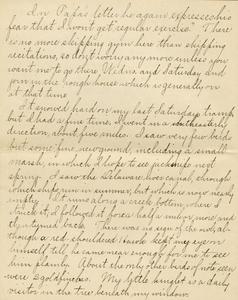 In Papa's letter he again expresses his
fear that I won't get regular exercise. There
is no more skipping gym here than skipping
recitations, so don't worry any more unless you
want me to go there Wednes. and Saturday and
run in the rough house which is generally on
at that time.
I snowed hard on my last Saturday tramp
but I had a fine time. I went in a southeasterly
direction, about five miles. I saw very few birds
but some fine new ground, including a small
marsh, in which I hope to see things next
spring. I saw the Delaware lines canal, through
which ships run in summer, but which is now nearly
empty. It runs along a creek bottom, where I
struck it. I followed it for as half a mile or more and
then turned back. There was no sign of the owl, al-
though a red shouldered hawk kept my eye on
himself till he came near enough for me to see
him plainly. About the only other birds of note seen
were 2 goldfinches. My little kinglet is a daily
visitor in the tree beneath my window.